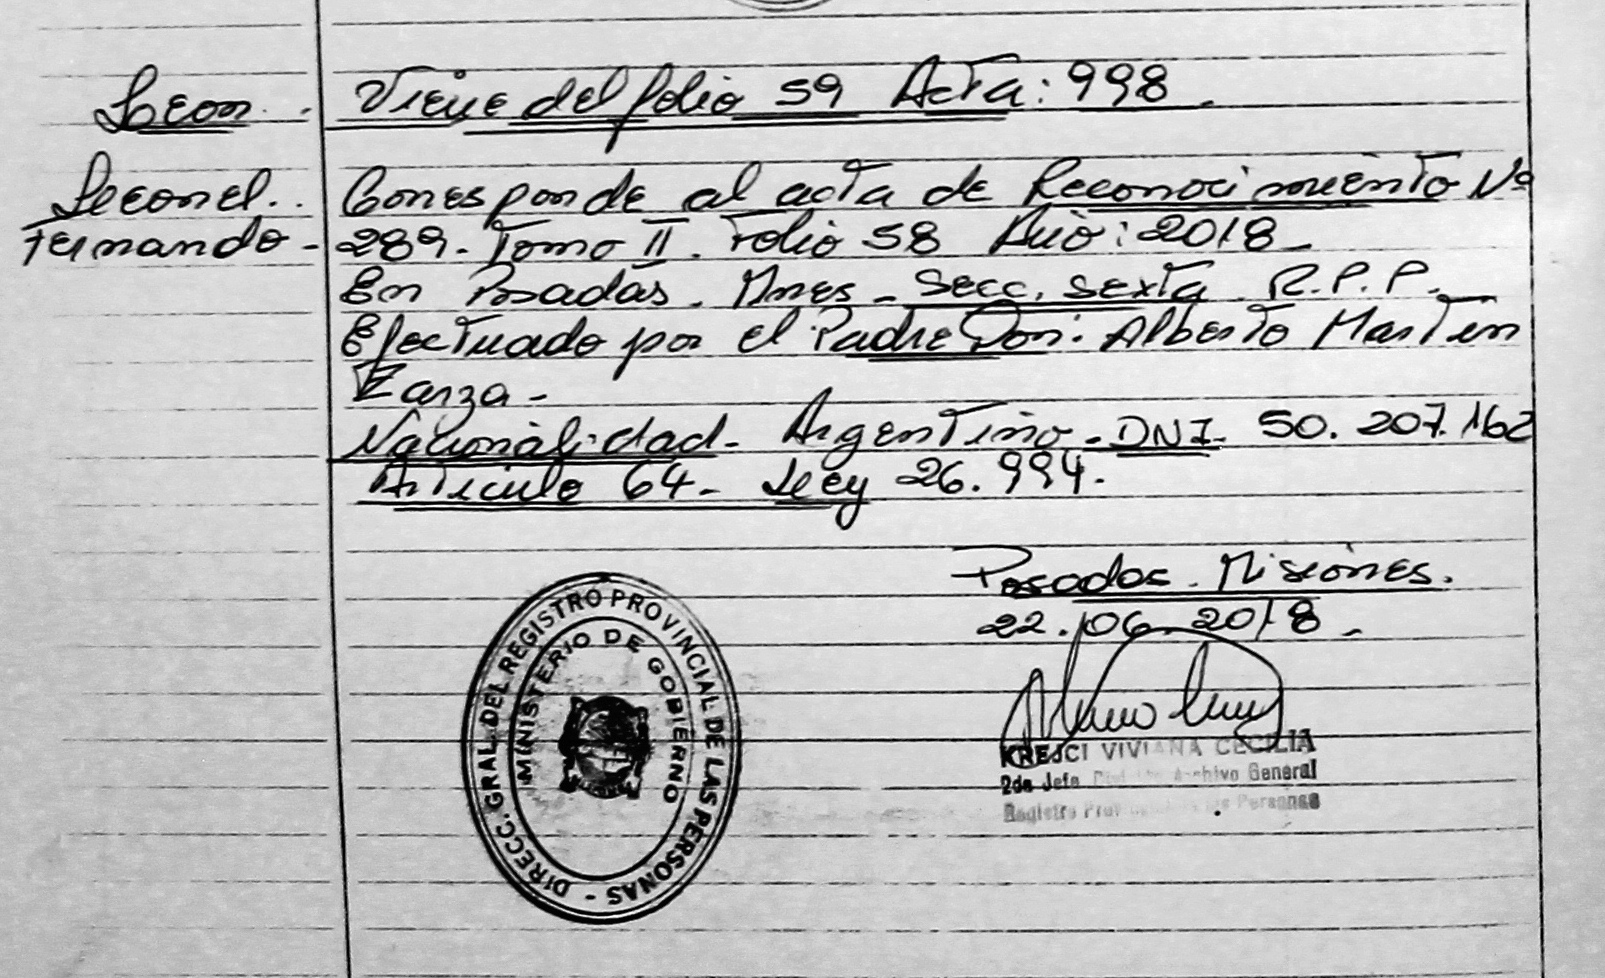 Leon.
Viene del folio 59 Acta: 998.
Leonel..
Fernando-
Corresponde al acta de Reconocimiento Nº
289. Tomo II. Folio 58 Año: 2018-
En Posadas. Mnes - Secc. Sexta. R.P.P.
Efectuado por el Padre Don: Alberto Martin
Zarza-
Nacionalidad- Argentino- DNI- 50.207.162
Articulo 64- Ley 26.994.
Posadas. Misiones.
22.06.2018.
DIRECC. GRAL. DEL REGISTRO PROVINCIAL DE LAS PERSONAS -
MINISTERIO DE GOBIERNO
KREJCI VIVIANA CECILIA
2da Jefa Archivo General
Registro Personas